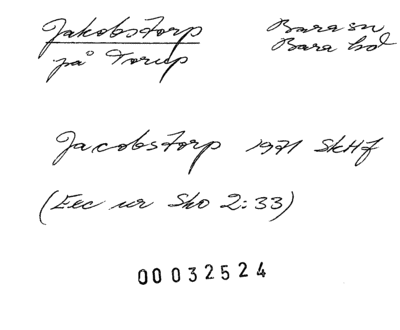 Jakobstorp
på Torup
Bara sn
Bara hd
Jacobstorp 1971 SkHf
(Exc ur Sko 2:33)
00032524